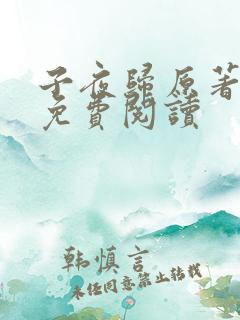 子夜歸原著
免費閱讀
韩慎言
未经同意禁止转载